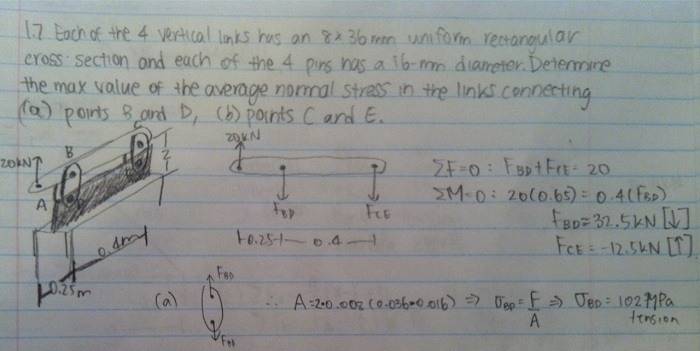 1.7 Each of the 4 vertical links has an 8x36mm uniform rectangular
cross section and each of the 4 pins has a 16-mm diameter. Determine
the max value of the average normal stress in the links connecting
(a) points B and D, (b) points C and E.
20kN
B
C
A
0.4m
0.25m
20kN
F_BD
F_CE
0.25
0.4
ΣF=0: F_BD+F_CE = 20
ΣM=0: 20(0.65) = 0.4(F_BD)
F_BD=32.5kN [↓]
F_CE=-12.5kN [↑]
(a)
F_BD
F_BD
∴ A=2·0.008(0.036-0.016) ⇒ σ_BD = F/A ⇒ σ_BD = 102MPa
tension